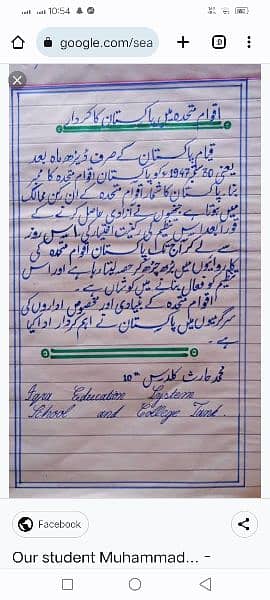 10:54
google.com/sea
اقوام متحدہ میں پاکستان کا کردار
قیام پاکستان کے صرف ڈیڑھ ماہ بعد
یعنی 30 ستمبر 1947ء کو پاکستان اقوام متحدہ کا ممبر
بنا پاکستان کا شمار اقوام متحدہ کے ان رکن ممالک
میں ہوتا ہے جنھوں نے آزادی حاصل کرنے کے
فوراً بعد اس تنظیم کی رکنیت اختیار کی اس روز
سے لے کر آج تک پاکستان اقوام متحدہ کی
کاروائیوں میں بڑھ چڑھ کر حصہ لیتا رہا ہے اور اس
تنظیم کو فعال بنانے میں کوشاں ہے۔
اقوام متحدہ کے بنیادی اور مخصوص اداروں کی
سرگرمیوں میں پاکستان نے اہم کردار ادا کیا
ہے۔
محمد حارث کلاس 10th
Iqra Education System
School and College Tank.
Facebook
Our student Muhammad... -